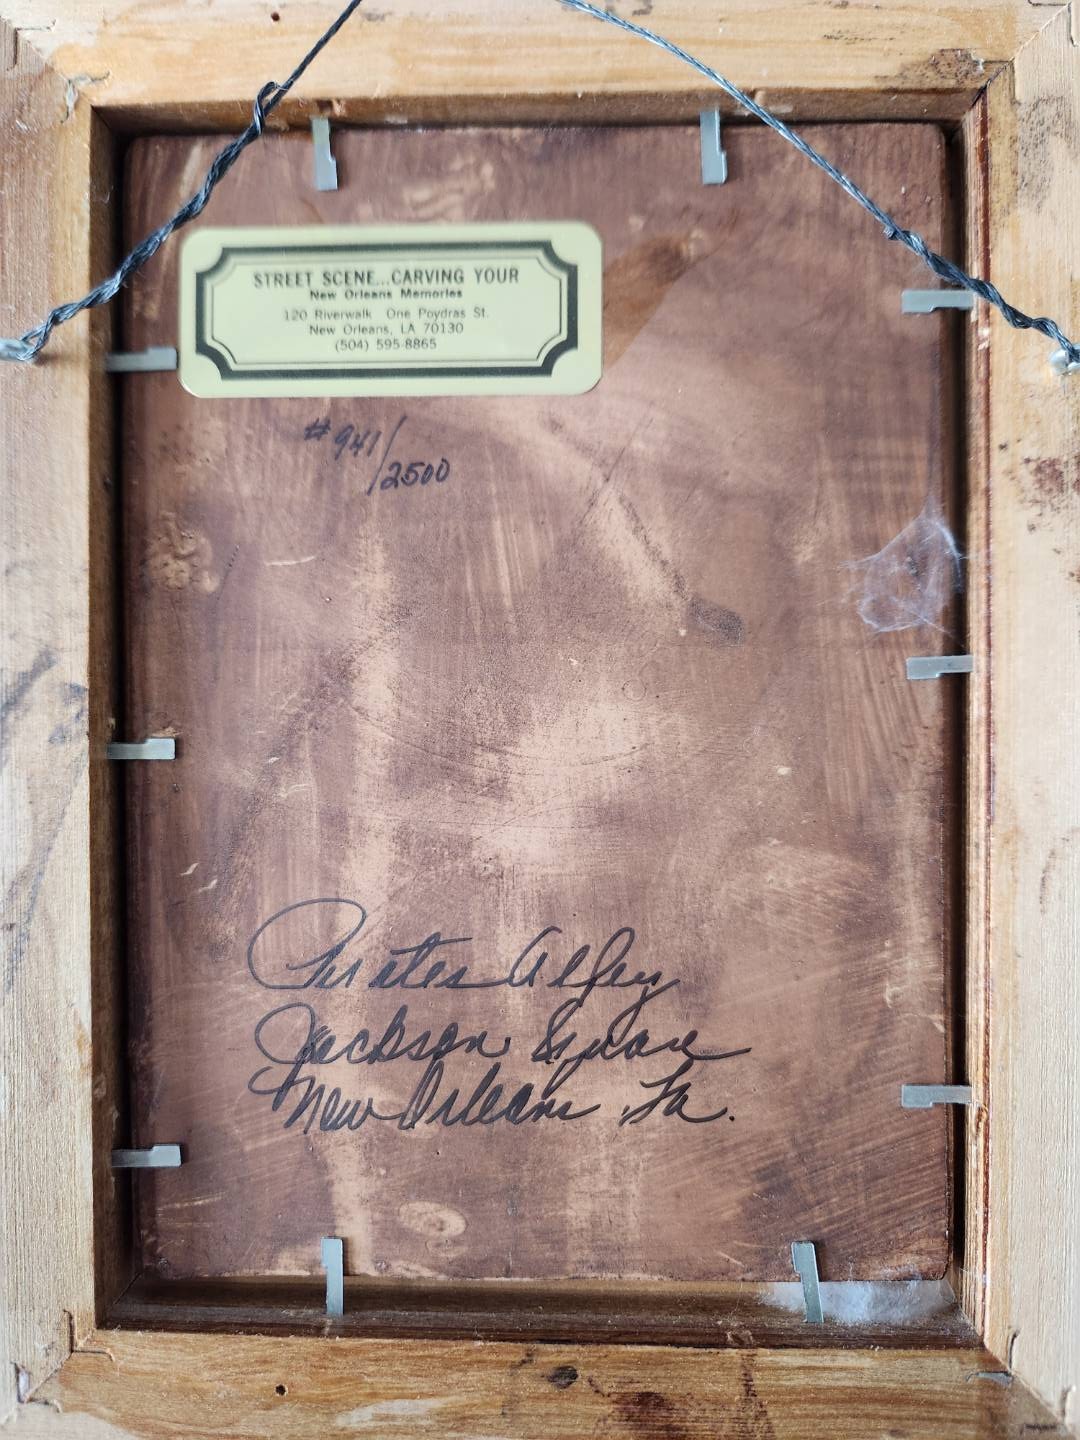 STREET SCENE...CARVING YOUR
New Orleans Memories
120 Riverwalk One Poydras St.
New Orleans, LA 70130
(504) 595-8865
#941/
2500
Pirates Alley
Jackson Square
New Orleans, La.